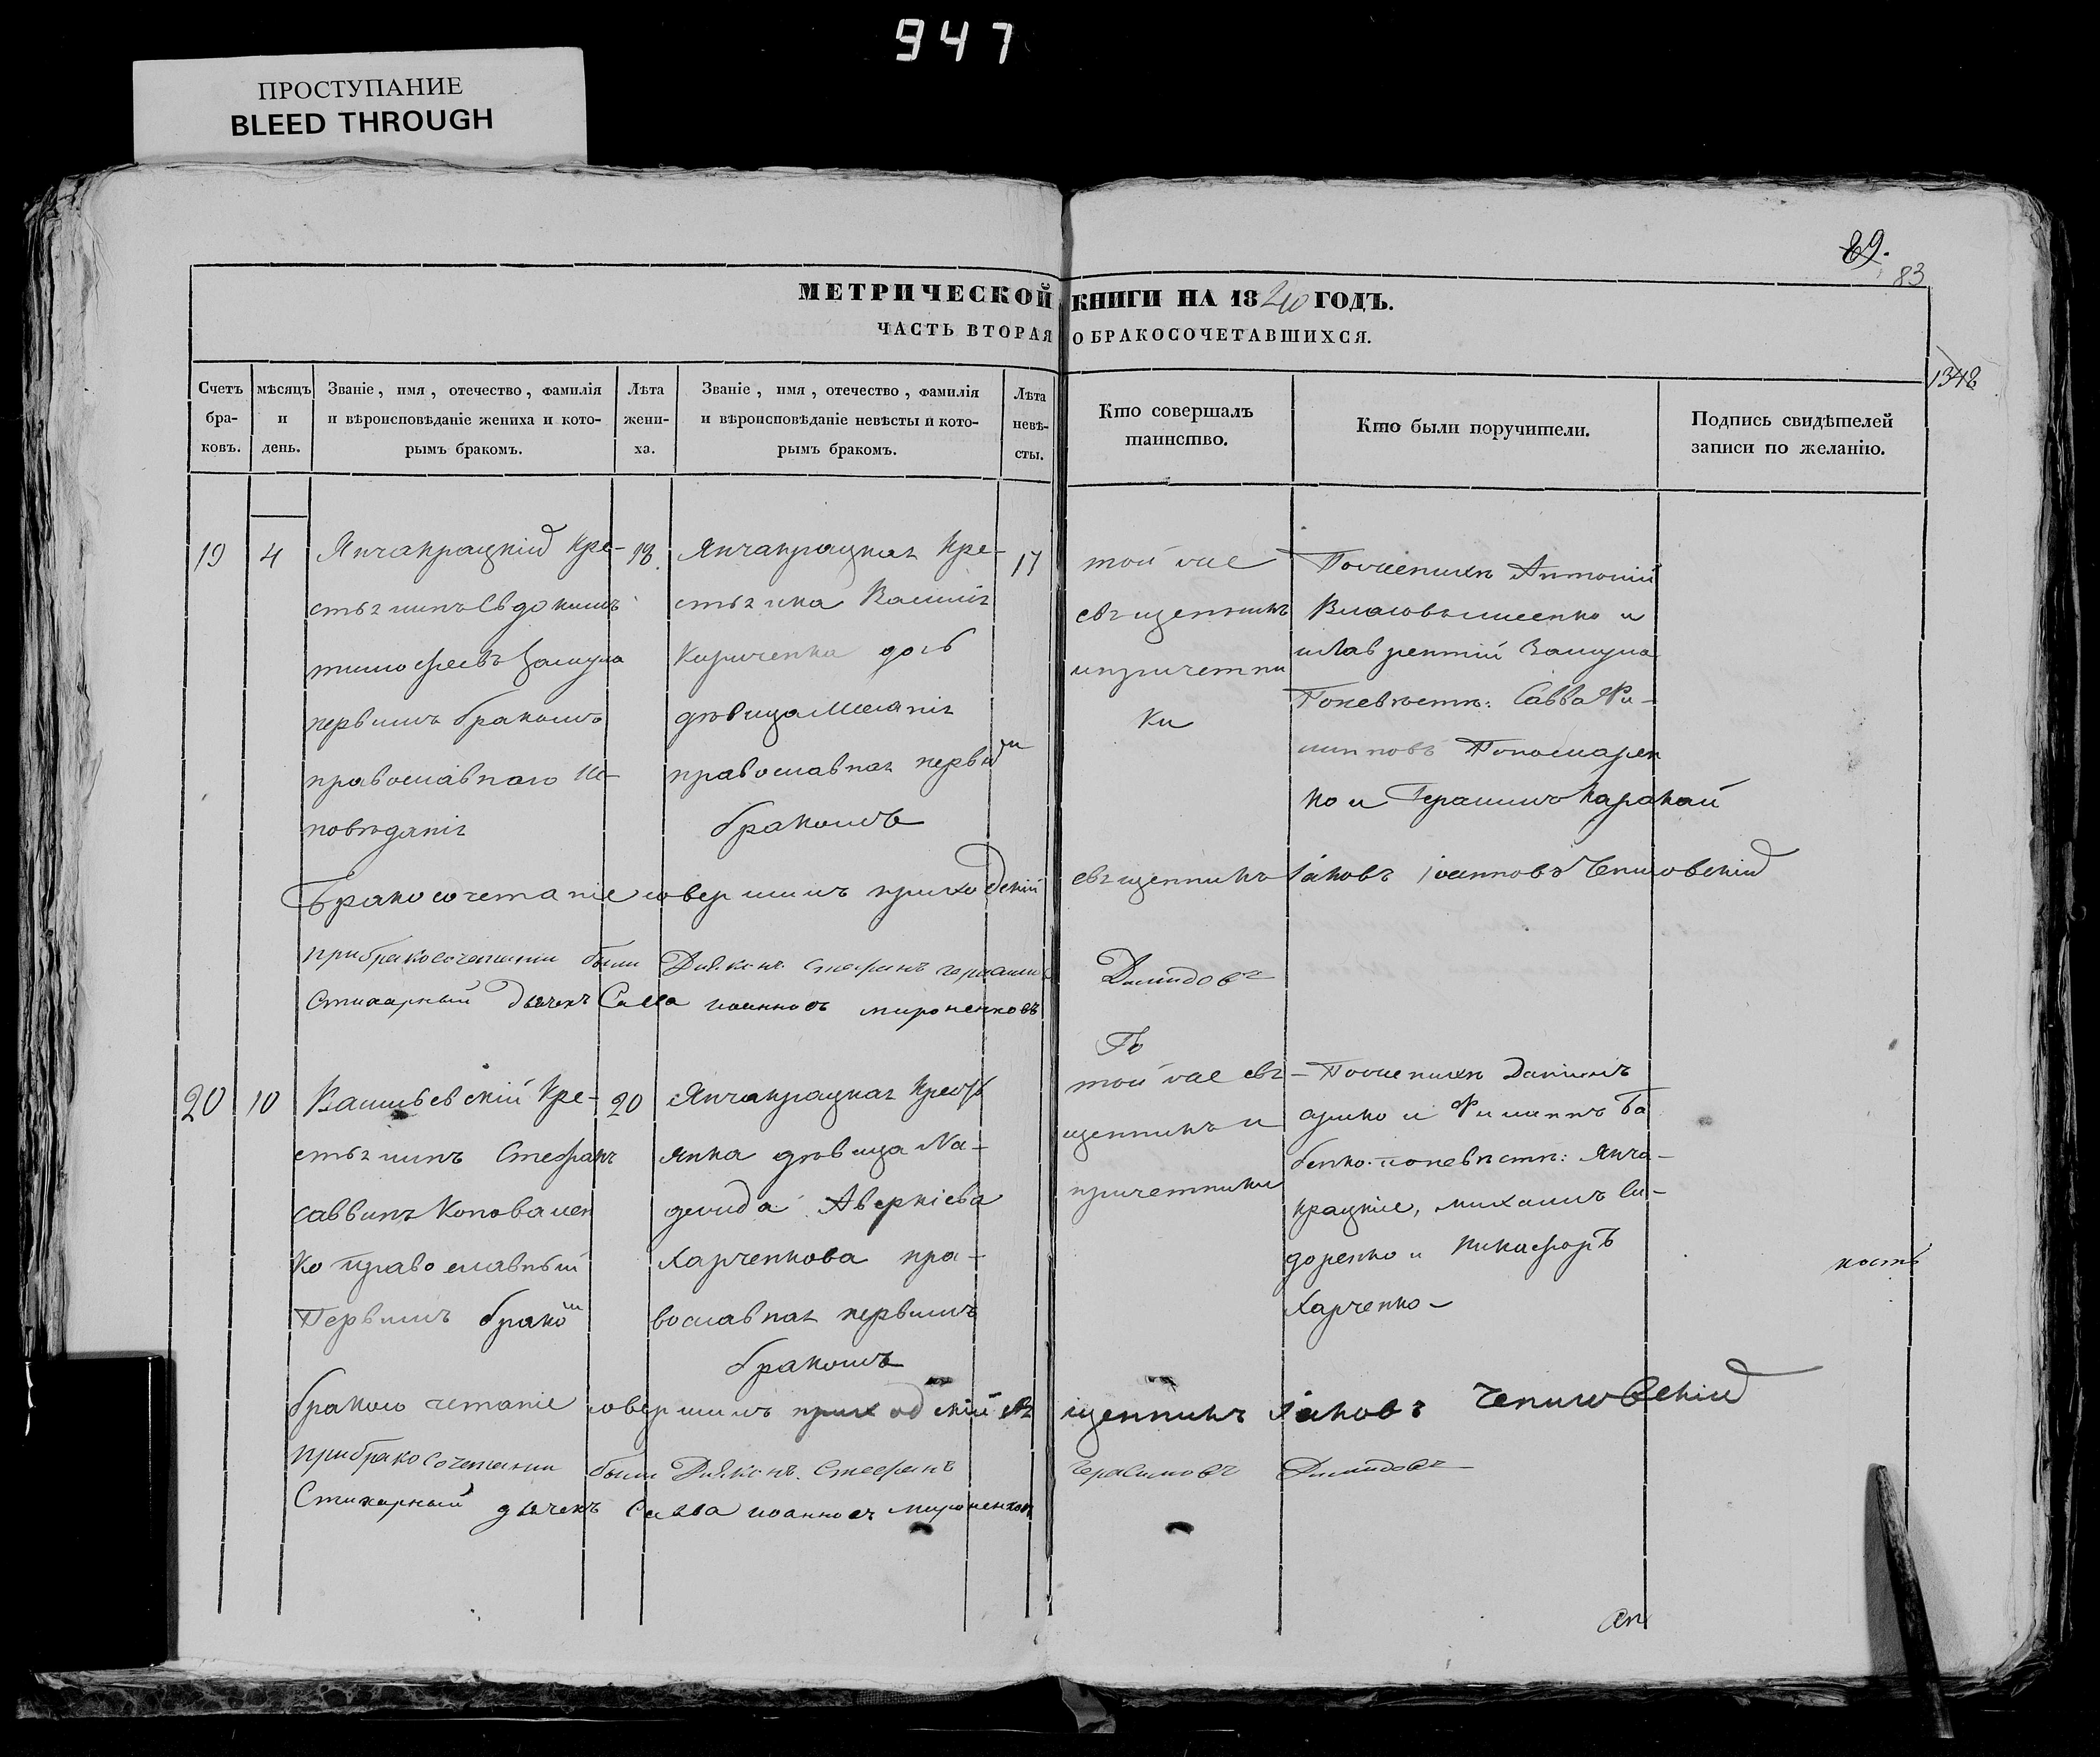 947
ПРОСТУПАНИЕ
BLEED THROUGH
89.
83
МЕТРИЧЕСКОЙ КНИГИ НА 1840 ГОДЪ.
ЧАСТЬ ВТОРАЯ О БРАКОСОЧЕТАВШИХСЯ.
1348
Счетъ бра-ковъ.
мѣсяцъ и день.
Званіе, имя, отечество, фамилія
и вѣроисповѣданіе жениха и кото-
рымъ бракомъ.
Лѣта жени-ха.
Званіе, имя, отечество, фамилія
и вѣроисповѣданіе невѣсты и кото-
рымъ бракомъ.
Лѣта невѣ-сты.
Кто совершалъ
таинство.
Кто были поручители.
Подпись свидѣтелей
записи по желанію.
19
4
Янчакрацкій Кре-
стьянинъ Евдокимъ
тимофеевъ
первимъ бракомъ
православнаго Ис-
поведанія
18
Янчакрацкая Кре-
стьянка Василія
Кириченка дочь
девица Меланія
православная первим
бракомъ
17
той же
священникъ
и причетни
ки
По женихе Антоній
и
и Лаврентій
По невесте: Савва Фи-
липповъ Пономарен
ко и Герасимъ Каракай
Бракосочетаніе совершилъ приходскій священникъ Іаковъ Іоанновъ Чепиговскій
при бракосочетании были Диякон Стефанъ Герасимо Демидовъ
Стихарный дьячекъ Савва Иоанновъ мироненковъ
20
10
Васильевскій Кре-
стьянинъ Стефанъ
саввинъ Коновален
ко православный
Первимъ браком
20
Янчакрацкая Кресть
янка девица На-
дежда Аверкіева
Харченкова пра-
вославная первимъ
бракомъ
той же свя
щенникъ и
причетники
По женихе Даніилъ
и Филиппъ Ба
бенко. по невесте: Янча-
крацкіе, михаилъ Си-
доренко и Никифоръ
Харченко
бракосочетаніе совершилъ приходскій священникъ Іаковъ Чепиговскій
при бракосочетании были Диякон Стефанъ Герасимовъ Демидовъ
Стихарный дьячекъ Савва иоанновъ мироненков
ность